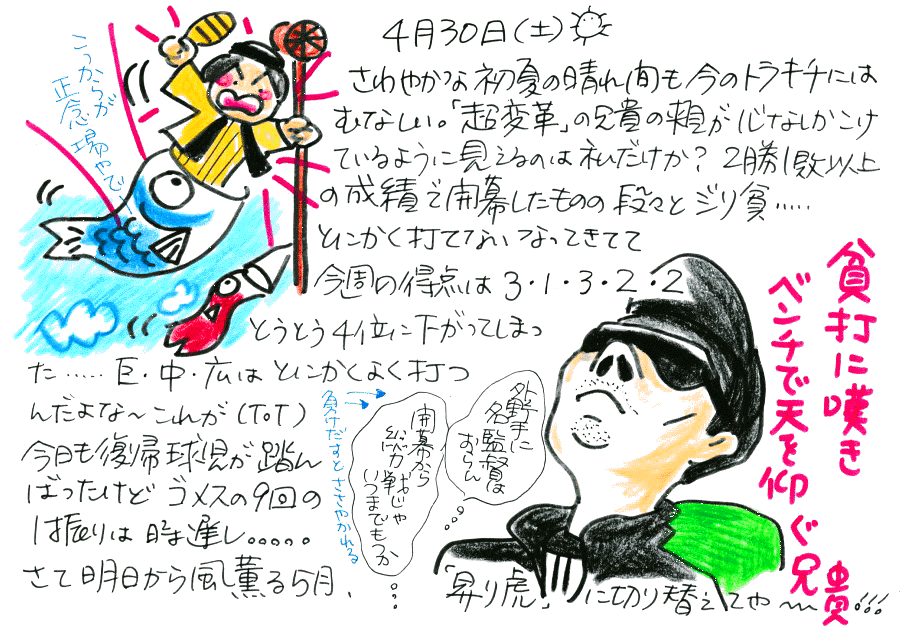 4月30日(土)
さわやかな初夏の晴れ間も今のトラキチには
むなしい。「超変革」の兄貴の頬が心なしかこけ
ているように見えるのは私だけか？ 2勝1敗以上
の成績で開幕したものの段々とジリ貧.....
とにかく打てないなってきてて
今週の得点は3・1・3・2・2
とうとう4位に下がってしまっ
た.....巨・中・広はとにかくよく打つ
んだよな～これが(ToT)
今日も復帰球児が踏ん
ばったけどゴメスの9回の
1振りは時遅し。。。。。
さて明日から風薫る5月、
「昇り虎」に切り替えてや～～!!!
こっからが
正念場やで
貧打に嘆き
ベンチで天を仰ぐ兄貴
外野手に
名監督は
おらん
開幕から
総力戦じゃ
いつまでもつか
負けだすとささやかれる